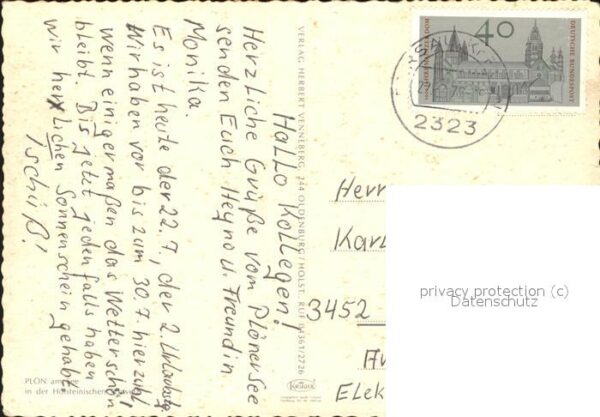 Hallo Kollegen!
Herzliche Grüße vom Plöner See
senden Euch Heyno u. Freundin
Monika.
Es ist heute der 22.7., der 2. Urlaubstag
Wir haben vor bis zum 30.7. hier zu bl.
wenn einigermaßen das Wetter schön
bleibt. Bis jetzt jedenfalls haben
wir herrlichen Sonnenschein gehabt.
Tschüß!
VERLAG HERBERT VENNEBERG, 244 OLDENBURG/HOLST. RUF 04361/2726
PLÖN am
in der Holsteinischen
40
DEUTSCHE BUNDESPOST
DOM
2323
Herr
Karl
3452
Elek
privacy protection (c)
Datenschutz